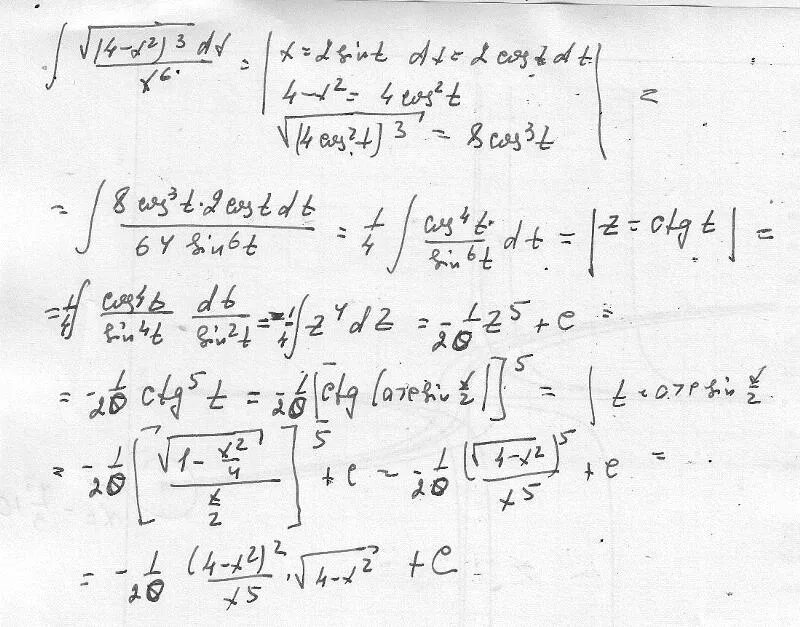 ∫ √(4-x²)³ dx / x⁶ = | x = 2 sin t dx = 2 cos t dt
4-x² = 4 cos² t | =
√(4 cos² t)³ = 8 cos³ t
= ∫ 8 cos³ t · 2 cos t dt / 64 sin⁶ t = 1/4 ∫ cos⁴ t / sin⁶ t dt = | z = ctg t | =
= 1/4 ∫ cos⁴ t / sin⁴ t dt / sin² t = -1/4 ∫ z⁴ dz = -1/20 z⁵ + C =
= -1/20 ctg⁵ t = -1/20 [ctg (arcsin x/2)]⁵ = | t = arcsin x/2
= -1/20 [√(1 - x²/4) / (x/2)]⁵ + C = -1/20 (√(4-x²))⁵ / x⁵ + C =
= -1/20 (4-x²)² / x⁵ · √(4-x²) + C